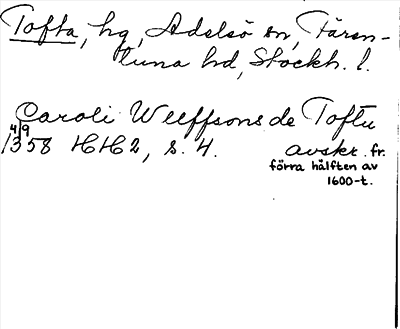 Tofta, hg, Adelsö sn, Fären-
tuna hd, Stockh. l.
Caroli Wlffsons de Toftu
4/9
1358 HH2, s. 4. avskr. fr.
förra hälften av
1600-t.